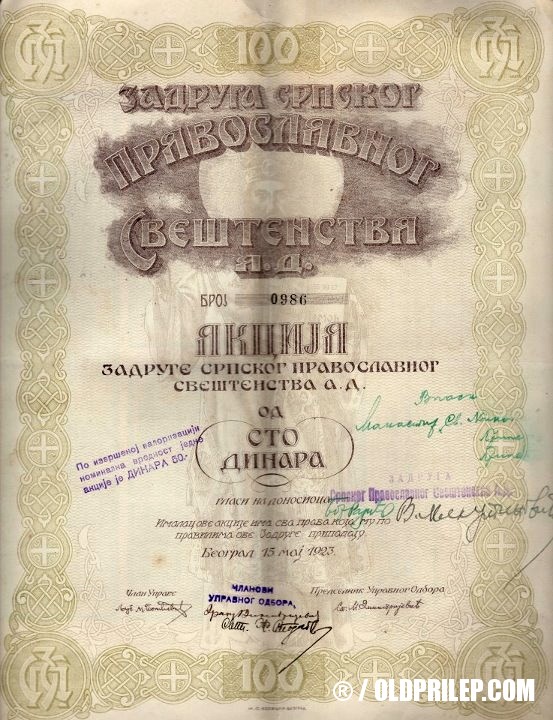 100
ЗАДРУГА СРПСКОГ
ПРАВОСЛАВНОГ
СВЕШТЕНСТВА
А.Д.
БРОЈ 0986
АКЦИЈА
ЗАДРУГЕ СРПСКОГ ПРАВОСЛАВНОГ
СВЕШТЕНСТВА А.Д.
ОД
СТО
ДИНАРА
По извршеној валоризацији
номинална вредност једне
акције је ДИНАРА 50.-
Манастир Св.
ЗАДРУГА
Српског Православног Свештенства А.Д.
ГЛАСИ НА ДОНОСИОЦА
Ималац ове акције има сва права која му по
правилима ове Задруге припадају
Београд 15 мај 1923.
Члан Управе
ЧЛАНОВИ
УПРАВНОГ ОДБОРА,
Председник Управног Одбора
100
® / OLDPRILEP.COM